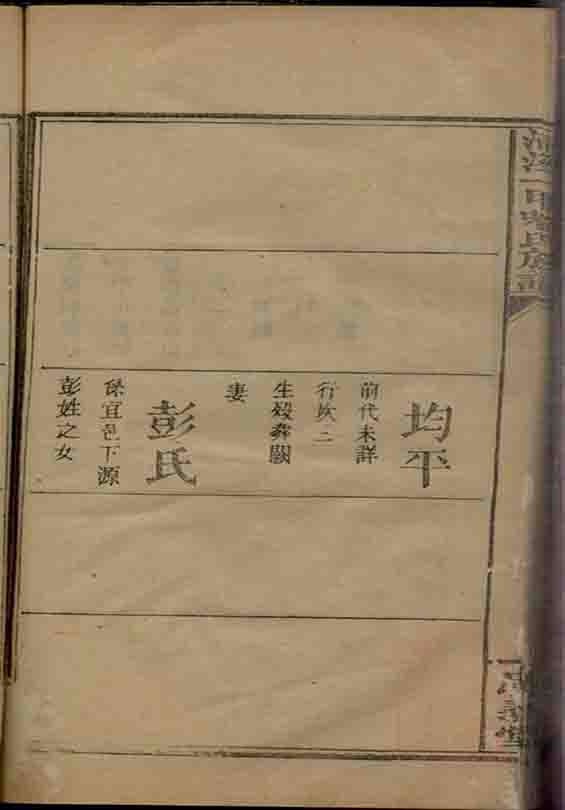 均平
前代未詳
行次二
生歿葬闕
妻
彭氏
係宜邑下源
彭姓之女